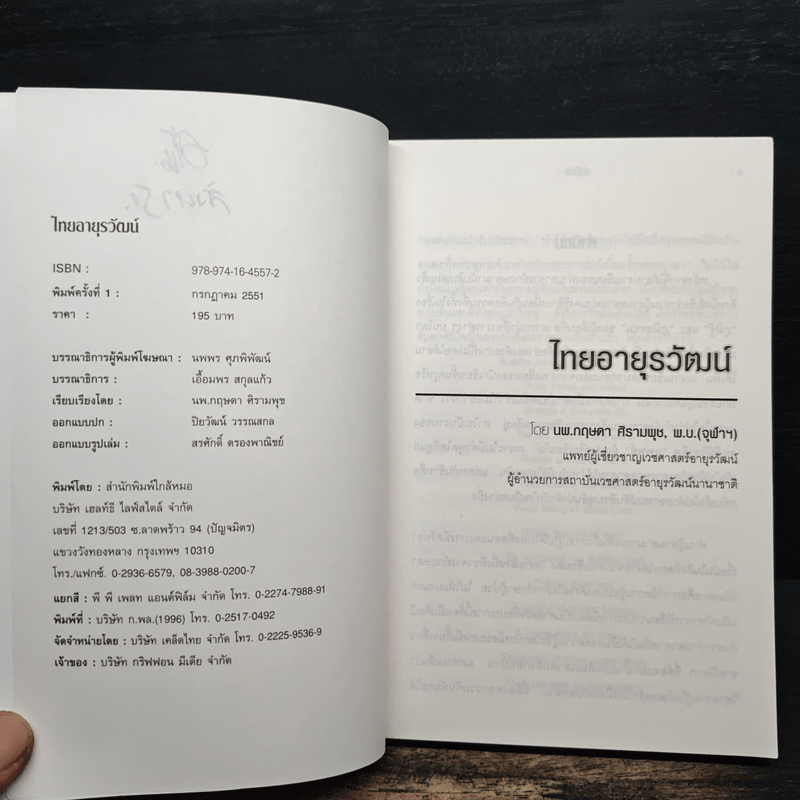 ไทยอายุรวัฒน์
ISBN : 978-974-16-4557-2
พิมพ์ครั้งที่ 1 : กรกฎาคม 2551
ราคา : 195 บาท
บรรณาธิการผู้พิมพ์โฆษณา : นพพร ศุภพิพัฒน์
บรรณาธิการ : เอื้อมพร สกุลแก้ว
เรียบเรียงโดย : นพ.กฤษดา ศิรามพุช
ออกแบบปก : ปิยวัฒน์ วรรณสกล
ออกแบบรูปเล่ม : สรศักดิ์ ตรองพาณิชย์
พิมพ์โดย : สำนักพิมพ์ใกล้หมอ
บริษัท เฮลท์ธี ไลฟ์สไตล์ จำกัด
เลขที่ 1213/503 ซ.ลาดพร้าว 94 (ปัญจมิตร)
แขวงวังทองหลาง กรุงเทพฯ 10310
โทร./แฟกซ์. 0-2936-6579, 08-3988-0200-7
แยกสี : พี พี เพลท แอนด์ฟิล์ม จำกัด โทร. 0-2274-7988-91
พิมพ์ที่ : บริษัท ก.พล.(1996) โทร. 0-2517-0492
จัดจำหน่ายโดย : บริษัท เคล็ดไทย จำกัด โทร. 0-2225-9536-9
เจ้าของ : บริษัท กริฟฟอน มีเดีย จำกัด
ไทยอายุรวัฒน์
โดย นพ.กฤษดา ศิรามพุช, พ.บ.(จุฬาฯ)
แพทย์ผู้เชี่ยวชาญเวชศาสตร์อายุรวัฒน์
ผู้อำนวยการสถาบันเวชศาสตร์อายุรวัฒน์นานาชาติ